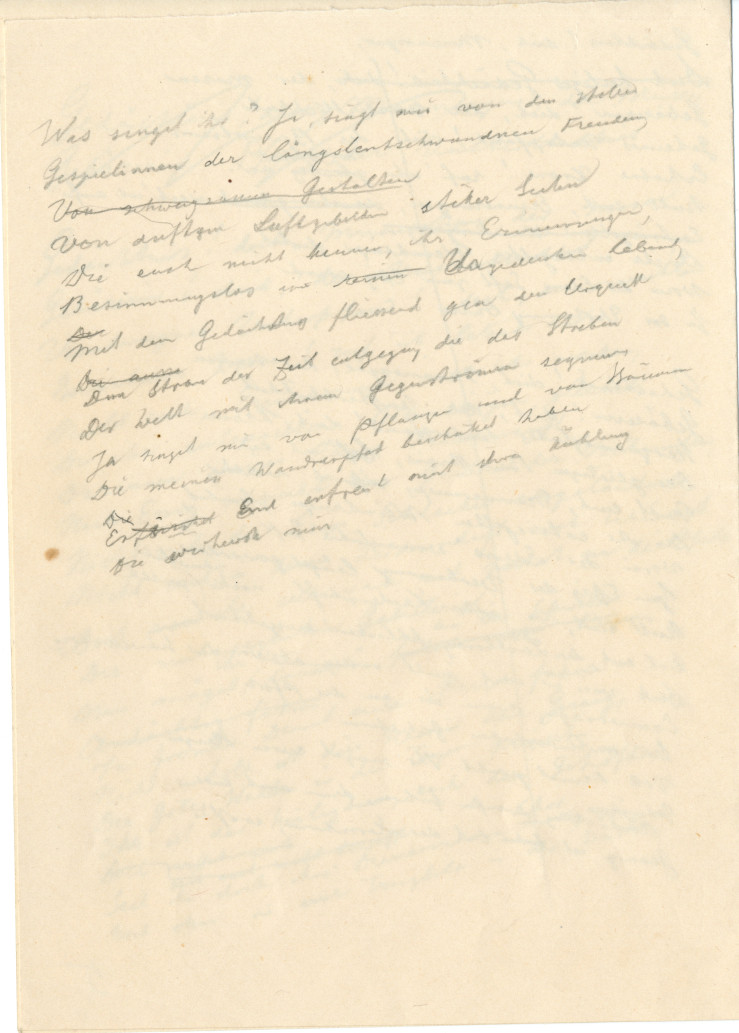 Was singet ihr? Ja, singt mir von den stolzen
Gespielinnen der längstentschwundnen Freuden,
Von schweigsamen Gestalten
Von duftgen Luftgebilden
Die euch nicht kennen, ihr Erinnerungen,
Besinnungslos im reinen Ungedenken lebend,
Der
Mit dem Gedächtnis fliessend gen den Urquell
Die
Dem Strom der Zeit entgegen, die das Streben
Der Welt mit ihrem Gegenströmen segnen,
Ja singet mir von Pflanzen und von Bäumen
Die meinen Wandrerpfad beschattet haben
Die
Und erfreut mit ihrer Kühlung
Die mir